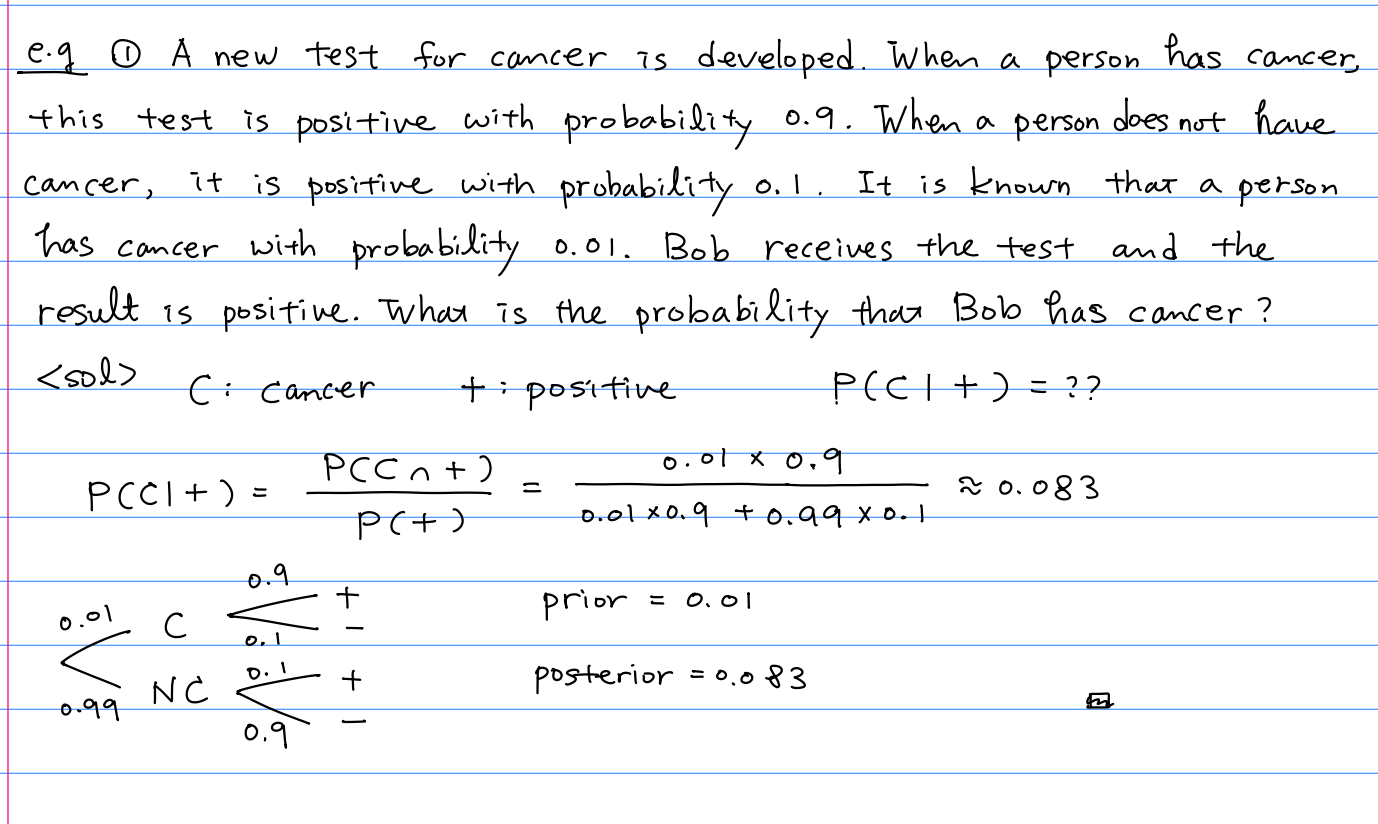 e.g ① A new test for cancer is developed. When a person has cancer,
this test is positive with probability 0.9. When a person does not have
cancer, it is positive with probability 0.1. It is known that a person
has cancer with probability 0.01. Bob receives the test and the
result is positive. What is the probability that Bob has cancer?
<sol> C: cancer +: positive P(C|+) = ??
P(C|+) = P(C∩+) / P(+) = 0.01 × 0.9 / 0.01×0.9 + 0.99×0.1 ≈ 0.083
0.01 C 0.9 + 0.1 −
0.99 NC 0.1 + 0.9 −
prior = 0.01
posterior = 0.083